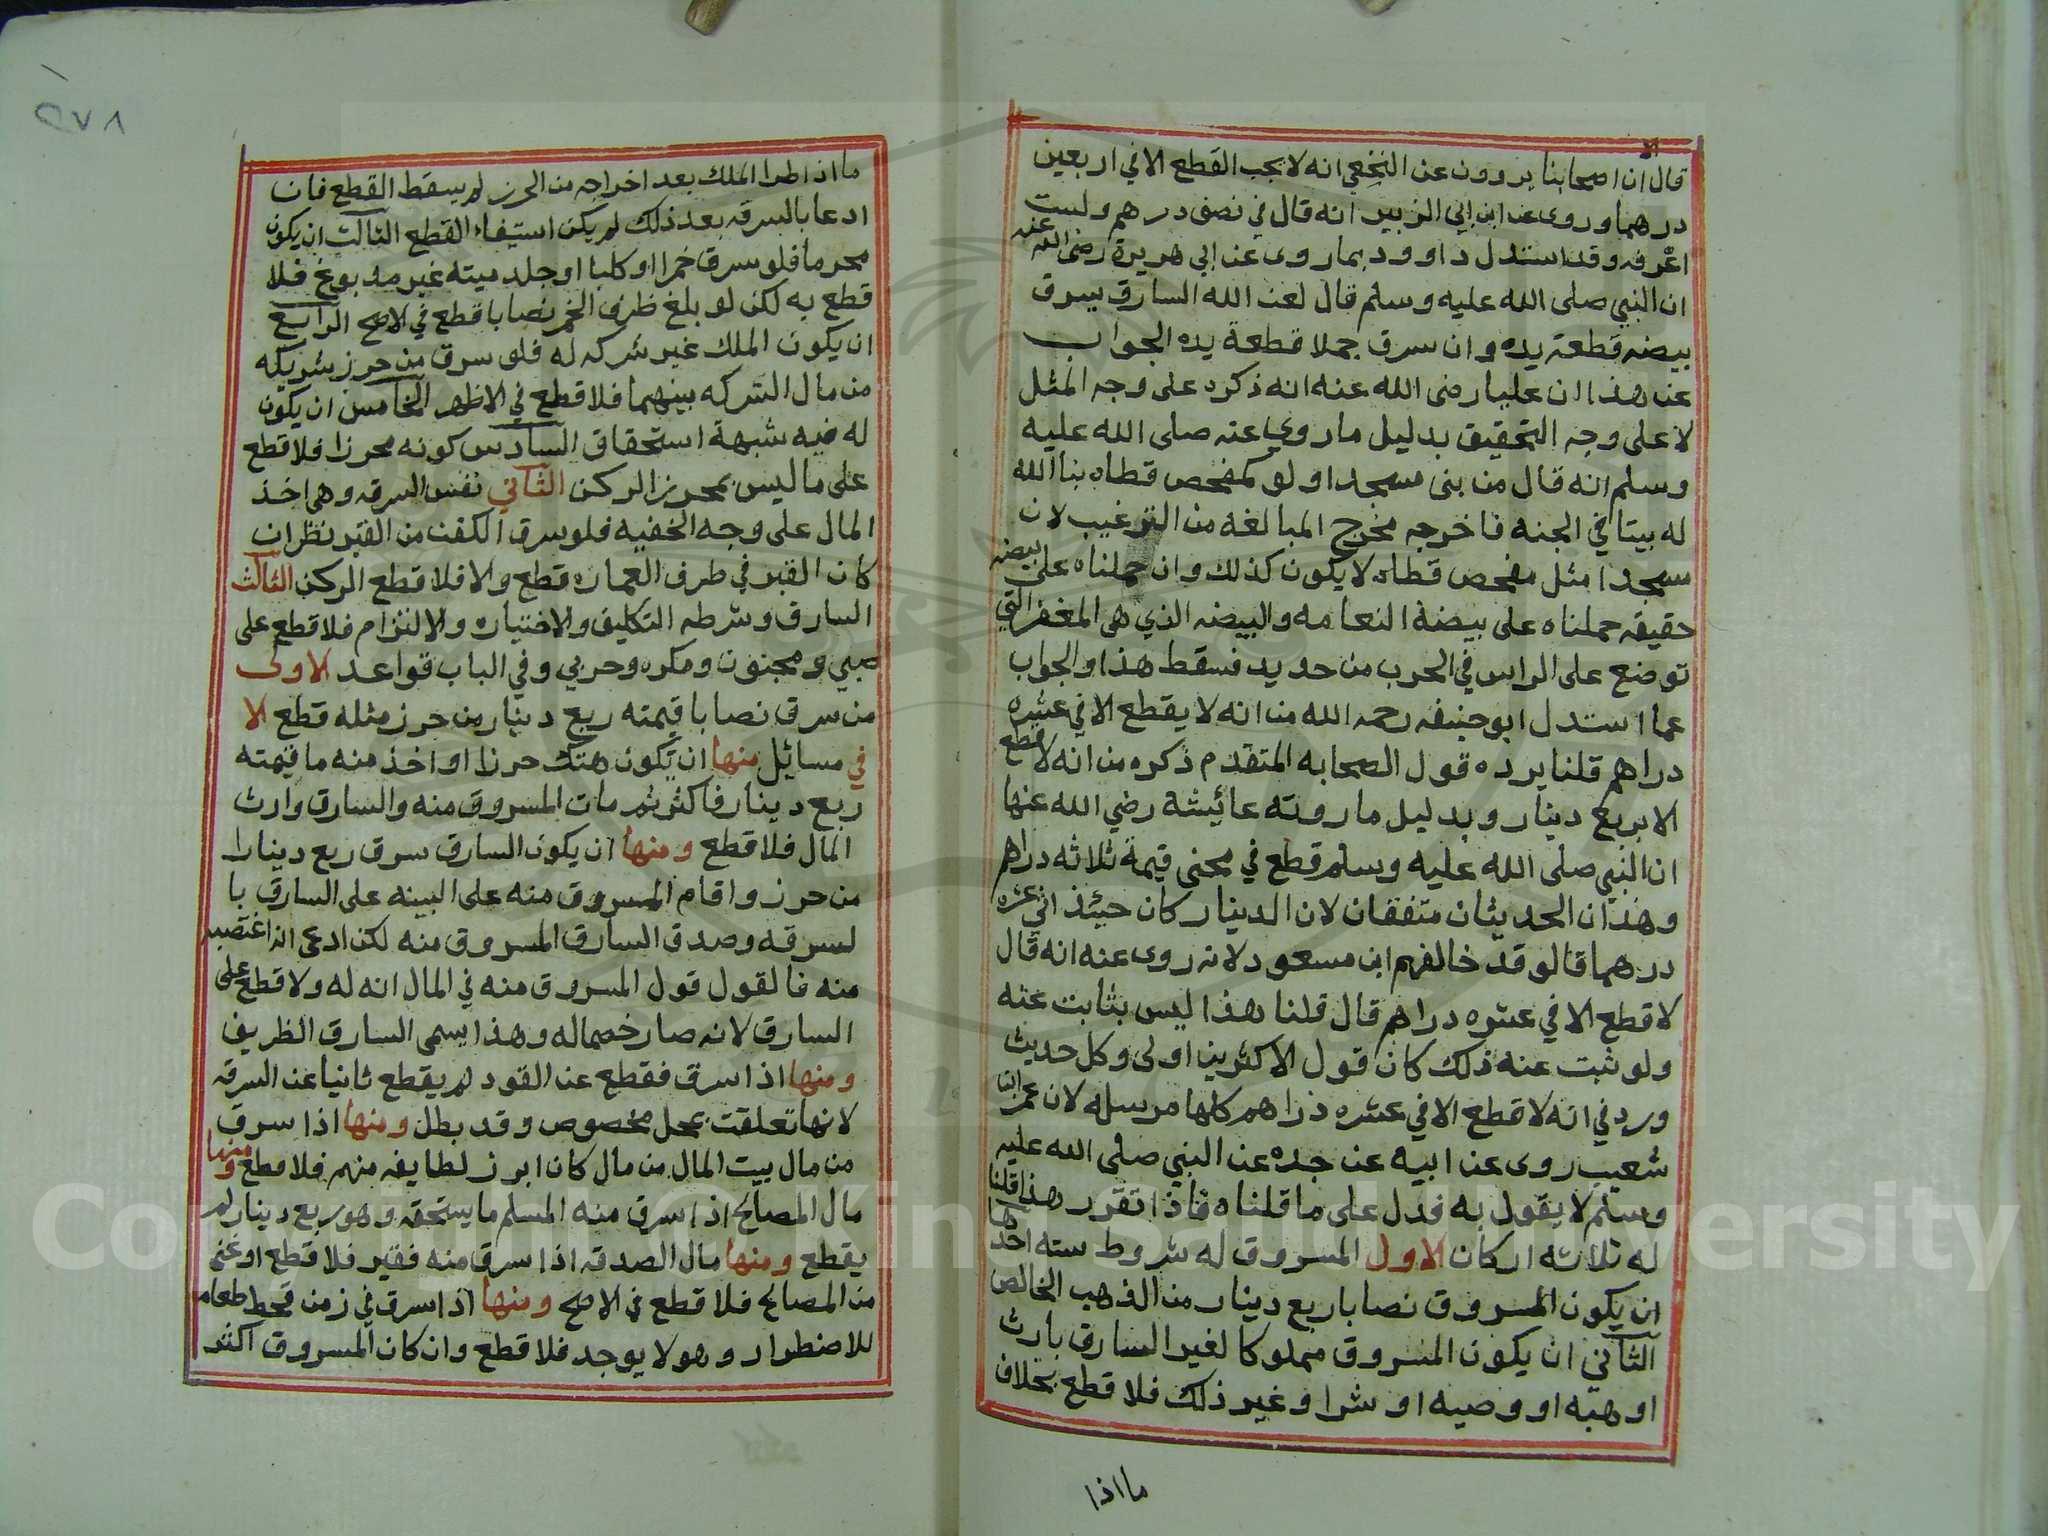 الا
قال ان اصحابنا يروون عن النخعي انه لا يجب القطع الا في اربعين
درهما وروى عن ابن ابي الزبير انه قال في نصف درهم ولست
اعرفه وقد استدل داوود بما روى عن ابي هريرة رضى الله عنه
ان النبي صلى الله عليه وسلم قال لعن الله السارق يسرق
بيضه قطعة يده وان سرق جملا قطعة يده الجواب
عن هذا ان عليا رضى الله عنه انه ذكره على وجه المثل
لا على وجه التحقيق بدليل ما روي عنه صلى الله عليه
وسلم انه قال من بنى مسجدا ولو كمفحص قطاه بنا الله
له بيتا في الجنه فاخرجه مخرج المبالغه من الترغيب لان
مسجدا مثل مفحص قطاه لا يكون كذلك وان حملناه على بيضه
حقيقه حملناه على بيضة النعامه والبيضه الذي هى المغفر التي
توضع على الراس في الحرب من حديد فسقط هذا والجواب
عما استدل ابو حنيفه رحمه الله من انه لا يقطع الا في عشره
دراهم قلنا يرده قول الصحابه المتقدم ذكره من انه لا قطع
الا بربع دينار وبدليل ما روته عائيشة رضي الله عنها
ان النبي صلى الله عليه وسلم قطع في مجنى قيمة ثلاثه دراهم
وهذان الحديثان متفقان لان الدينار كان حيئذ اثني عشره
درهما قالو قد خالفهم ابن مسعود لانه روى عنه انه قال
لا قطع الا في عشره دراهم قال قلنا هذا ليس بثابت عنه
ولو ثبت عنه ذلك كان قول الاكثرين اولى وكل حديث
ورد في انه لا قطع الا في عشره دراهم كلها مرسله لان عمر ابن
شعيب روى عن ابيه عن جده عن النبي صلى الله عليه
وسلم لا يقول به فدل على ما قلناه فاذا تقرر هذا قلنا
له ثلاثه اركان الاول المسروق له شروط سته احدها
ان يكون المسروق نصابا ربع دينار من الذهب الخالص
الثاني ان يكون المسروق مملوكا لغير السارق بارث
او هبه او وصيه او شرا وغير ذلك فلا قطع بخلاف
ما اذا
٢٧٨
ما اذا طرا الملك بعد اخراجه من الحرز لم يسقط القطع فان
ادعا بالسرقه بعد ذلك لم يكن استيفاء القطع الثالث ان يكون
محرما فلو سرق خمرا او كلبا او جلد ميته غير مدبوغ فلا
قطع به لكن لو بلغ ظرف الخمر نصابا قطع في الاصح الرابع
ان يكون الملك غير شركه له فلو سرق من حرز شريكه
من مال الشركه بينهما فلا قطع في الاظهر الخامس ان يكون
له فيه شبهة استحقاق السادس كونه محرزا فلا قطع
على ما ليس بمحرز الركن الثاني نفس السرقه وهى اخذ
المال على وجه الخفيه فلو سرق الكفن من القبر نظر ان
كان القبر في طرف العماره قطع والا فلا قطع الركن الثالث
السارق وشرطه التكليف والاختياره والالتزام فلا قطع على
صبي ومجنون ومكره وحربي وفي الباب قواعد الاولى
من سرق نصابا قيمته ربع دينار من حرز مثله قطع الا
في مسائيل منها ان يكون هتك حرزا او اخذ منه ما قيمته
ربع دينار فاكثر ثم مات المسروق منه والسارق وارث
المال فلا قطع ومنها ان يكون السارق سرق ربع دينارا
من حرز واقام المسروق منه على البينه على السارق با
لسرقه وصدق السارق المسروق منه لكن ادعى انه اغتصبه
منه فالقول قول المسروق منه في المال انه له ولا قطع على
السارق لانه صار خصما له وهذا يسمى السارق الظريف
ومنها اذا سرق فقطع عن القود لم يقطع ثانيا عن السرقه
لانها تعلقت بمحل مخصوص وقد بطل ومنها اذا سرق
من مال بيت المال من مال كان ابرز لطايفه منهم فلا قطع ومنها
مال المصالح اذا سرق منه المسلم ما يستحقه وهو ربع دينار لم
يقطع ومنها مال الصدقه اذا سرق منه فقير فلا قطع او غنى
من المصالح فلا قطع في الاصح ومنها اذا سرق في زمن قحط طعام
للاضطرار وهو لا يوجد فلا قطع وان كان المسروق اكثر
Copyright © King Saud University